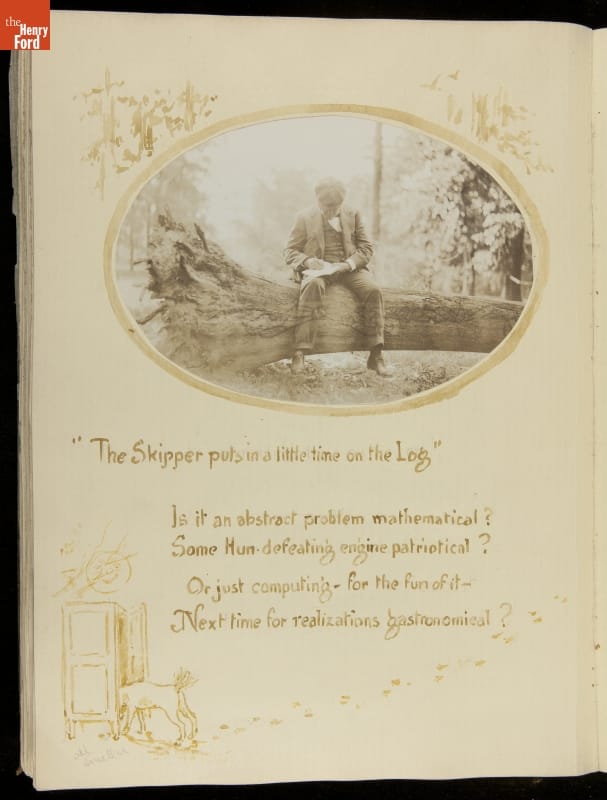 the
Henry
Ford
"The Skipper puts in a little time on the Log"
Is it an abstract problem mathematical?
Some Hun-defeating engine patriotical?
Or just computing - for the fun of it -
Next time for realizations gastronomical?